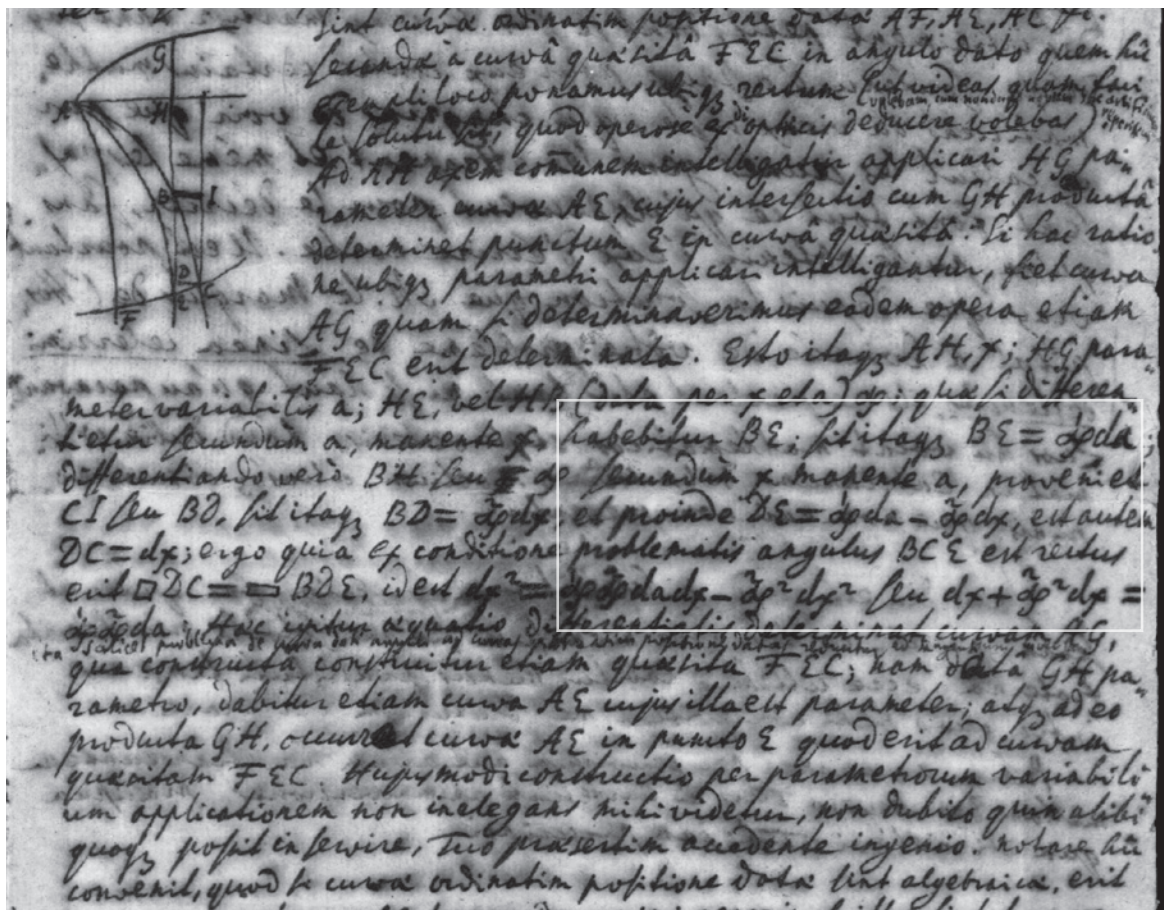 sint curvæ ordinatim positione datæ AF, AE, AC &c.
secundæ à curvâ quæsitâ FEC in angulo dato quem hu
exempli loco ponamus ubiqz rectum (ut videas quam faci
le solutu sit, quod operose ex opticis deducere volebas)
Ad AH axem comunem intelligatur applicari HG pa-
rameter curvæ AE, cujus intersectio cum GH productâ
determinet punctum E in curvâ quæsitâ. Si hac ratio
ne ubiqz parametri applicari intelligantur, fiet curva
AG quam si determinaverimus eadem opera etiam
FEC erit determinata. Esto itaqz AH, x; HG para-
meter variabilis a; HE, vel (data per x et a) quæ si differen-
tietur secundum a, manente x, habebitur BE; sit itaqz BE = da;
differentiando verò BH seu secundum x manente a, proveniet
CI seu BD, sit itaqz BD = dx, et proinde DE = da – dx, est autem
DC = dx; ergo quia ex conditione problematis angulus BCE est rectus
erit □DC = ▭ BDE, id est dx² = dadx – ² dx² seu dx + ² dx =
da. Hæc igitur æquatio differentialis determinat curvam AG,
qua constructa construitur etiam quæsita FEC; nam datâ GH pa-
rametro, dabitur etiam curva AE cujus illa est parameter; atqz adeo
producta GH, occurret curvæ AE in puncto E quod erit ad curvam
quæsitam FEC. Hujusmodi constructio per parametrorum variabili
um applicationem non inelegans mihi videtur, non dubito quin alibi
quoqz possit inservire, Tuo præsertim accedente ingenio. notare hu
convenit, quod si curvæ ordinatim positione datæ sint algebraicæ, erit
G
A H
B I
D
F E C